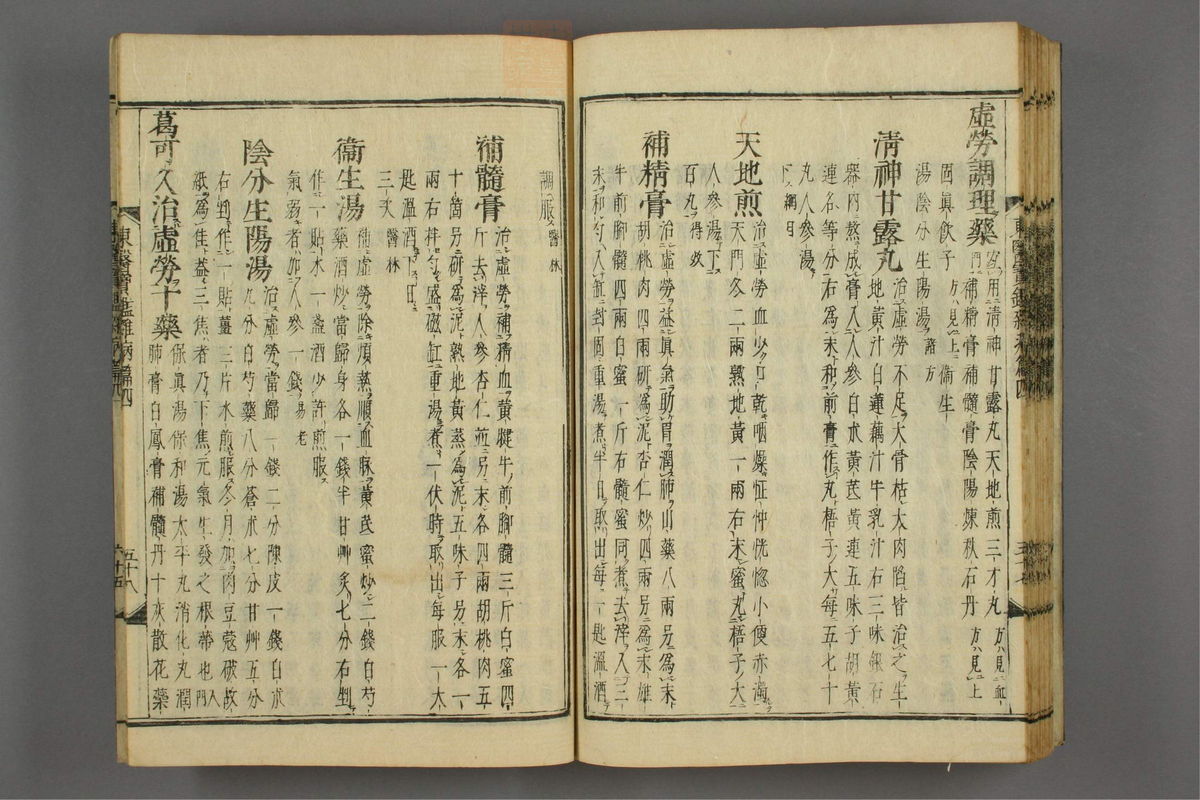 虛勞調理藥宜用清神甘露丸天地煎三才丸方見血
門補精膏補髓膏陰陽煉秋石丹方見上
固眞飮子方見上衞生
湯陰分生陽湯諸方
清神甘露丸治虛勞不足大骨枯大肉陷皆治之生
地黃汁白蓮藕汁牛乳汁右三味銀石
器內熬成膏入人參白朮黃芪黃連五味子胡黃
連各等分右爲末和前膏作丸梧子大每五七十
丸人參湯
下綱目
天地煎治虛勞血少口乾咽燥怔忡恍惚小便赤濁
天門冬二兩熟地黃一兩右末蜜丸梧子大
人參湯下
百丸得效
補精膏治虛勞益眞氣助胃潤肺山藥八兩另爲末
胡桃肉四兩研爲泥杏仁炒四兩另爲末雄
牛前脚髓四兩白蜜一斤右髓蜜同煮去滓入三
末和勻入缸封固重湯煮半日取出每一匙溫酒
調服醫林
補髓膏治虛勞補精血黃犍牛前脚髓三斤白蜜四
斤去滓人參杏仁並另末各四兩胡桃肉五
十箇另研爲泥熟地黃蒸爲泥五味子另末各一
兩右拌勻盛磁缸重湯煮一伏時取出每服一大
匙溫酒下日
三次醫林
衞生湯補虛勞除煩蒸順血脉黃芪蜜炒二錢白芍
藥酒炒當歸身各一錢半甘艸炙七分右剉
作一貼水一盞酒少許煎服
氣弱者加人參一錢易老
陰分生陽湯治虛勞當歸一錢二分陳皮一錢白朮
九分白芍藥八分蒼朮七分甘艸五分
右剉作一貼薑三片水煎服冬月加肉豆蔻破故
紙爲佳益三焦者乃下焦元氣生發之根蔕也入門
葛可久治虛勞十藥保眞湯保和湯太平丸消化丸潤
肺膏白鳳膏補髓丹十灰散花藥
東醫寶鑑雜病篇四
五十八